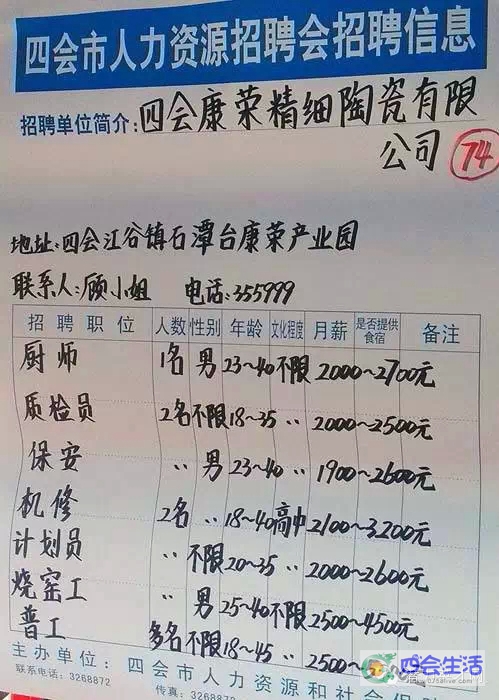 四会市人力资源招聘会招聘信息
招聘单位简介:四会康荣精细陶瓷有限
公司 74
地址:四会江谷镇石潭台康荣产业园
联系人:顾小姐 电话:355999
招聘职位 人数 性别 年龄 文化程度 月薪 是否提供食宿 备注
厨师 1名 男 23~40 不限 2000~2700元
质检员 2名 不限 18~35 〃 2000~2500元
保安 〃 男 23~40 〃 1900~2600元
机修 2名 〃 18~40 高中 2100~3200元
计划员 〃 不限 20~35 〃 2000~2600元
烧窑工 〃 男 25~40 不限 2500~4500元
普工 多名 不限 18~45 〃 2500~
主办单位:四会市人力资源和社
联系电话:3268872 传真:3268872
四会生活